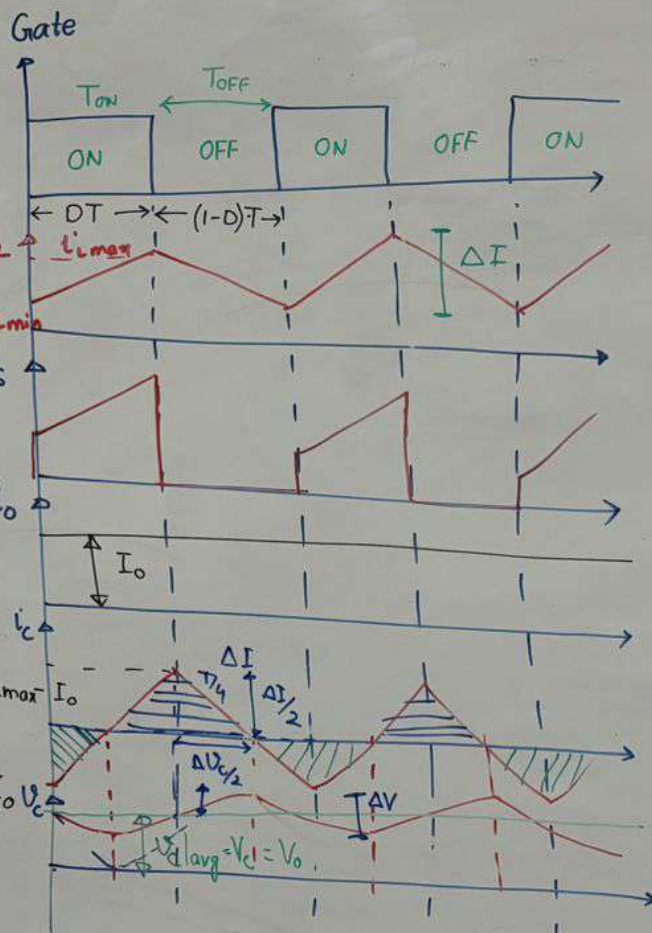 Gate
T_ON T_OFF
ON OFF ON OFF ON
← DT → ← (1-D)T →
i_Lmax
ΔI
min
I_o
i_c
ΔI
T/4 ΔI/2
max - I_o
ΔV_c/2
V_c
ΔV
avg = V_c = V_o